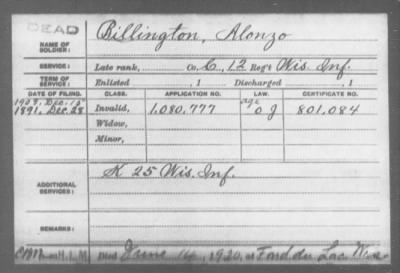 DEAD
NAME OF SOLDIER: Billington, Alonzo
SERVICE: Late rank, Co. C., 12 Reg't Wis. Inf.
TERM OF SERVICE: Enlisted , 1 Discharged , 1
DATE OF FILING. CLASS. APPLICATION NO. LAW. CERTIFICATE NO.
1908. Dec. 15 age
1891, Dec. 28 Invalid, 1.080.777 801.084
Widow,
Minor,
ADDITIONAL SERVICES: K 25 Wis. Inf.
REMARKS:
H.L.M. Died June 14, 1920, at Fond du Lac Wis